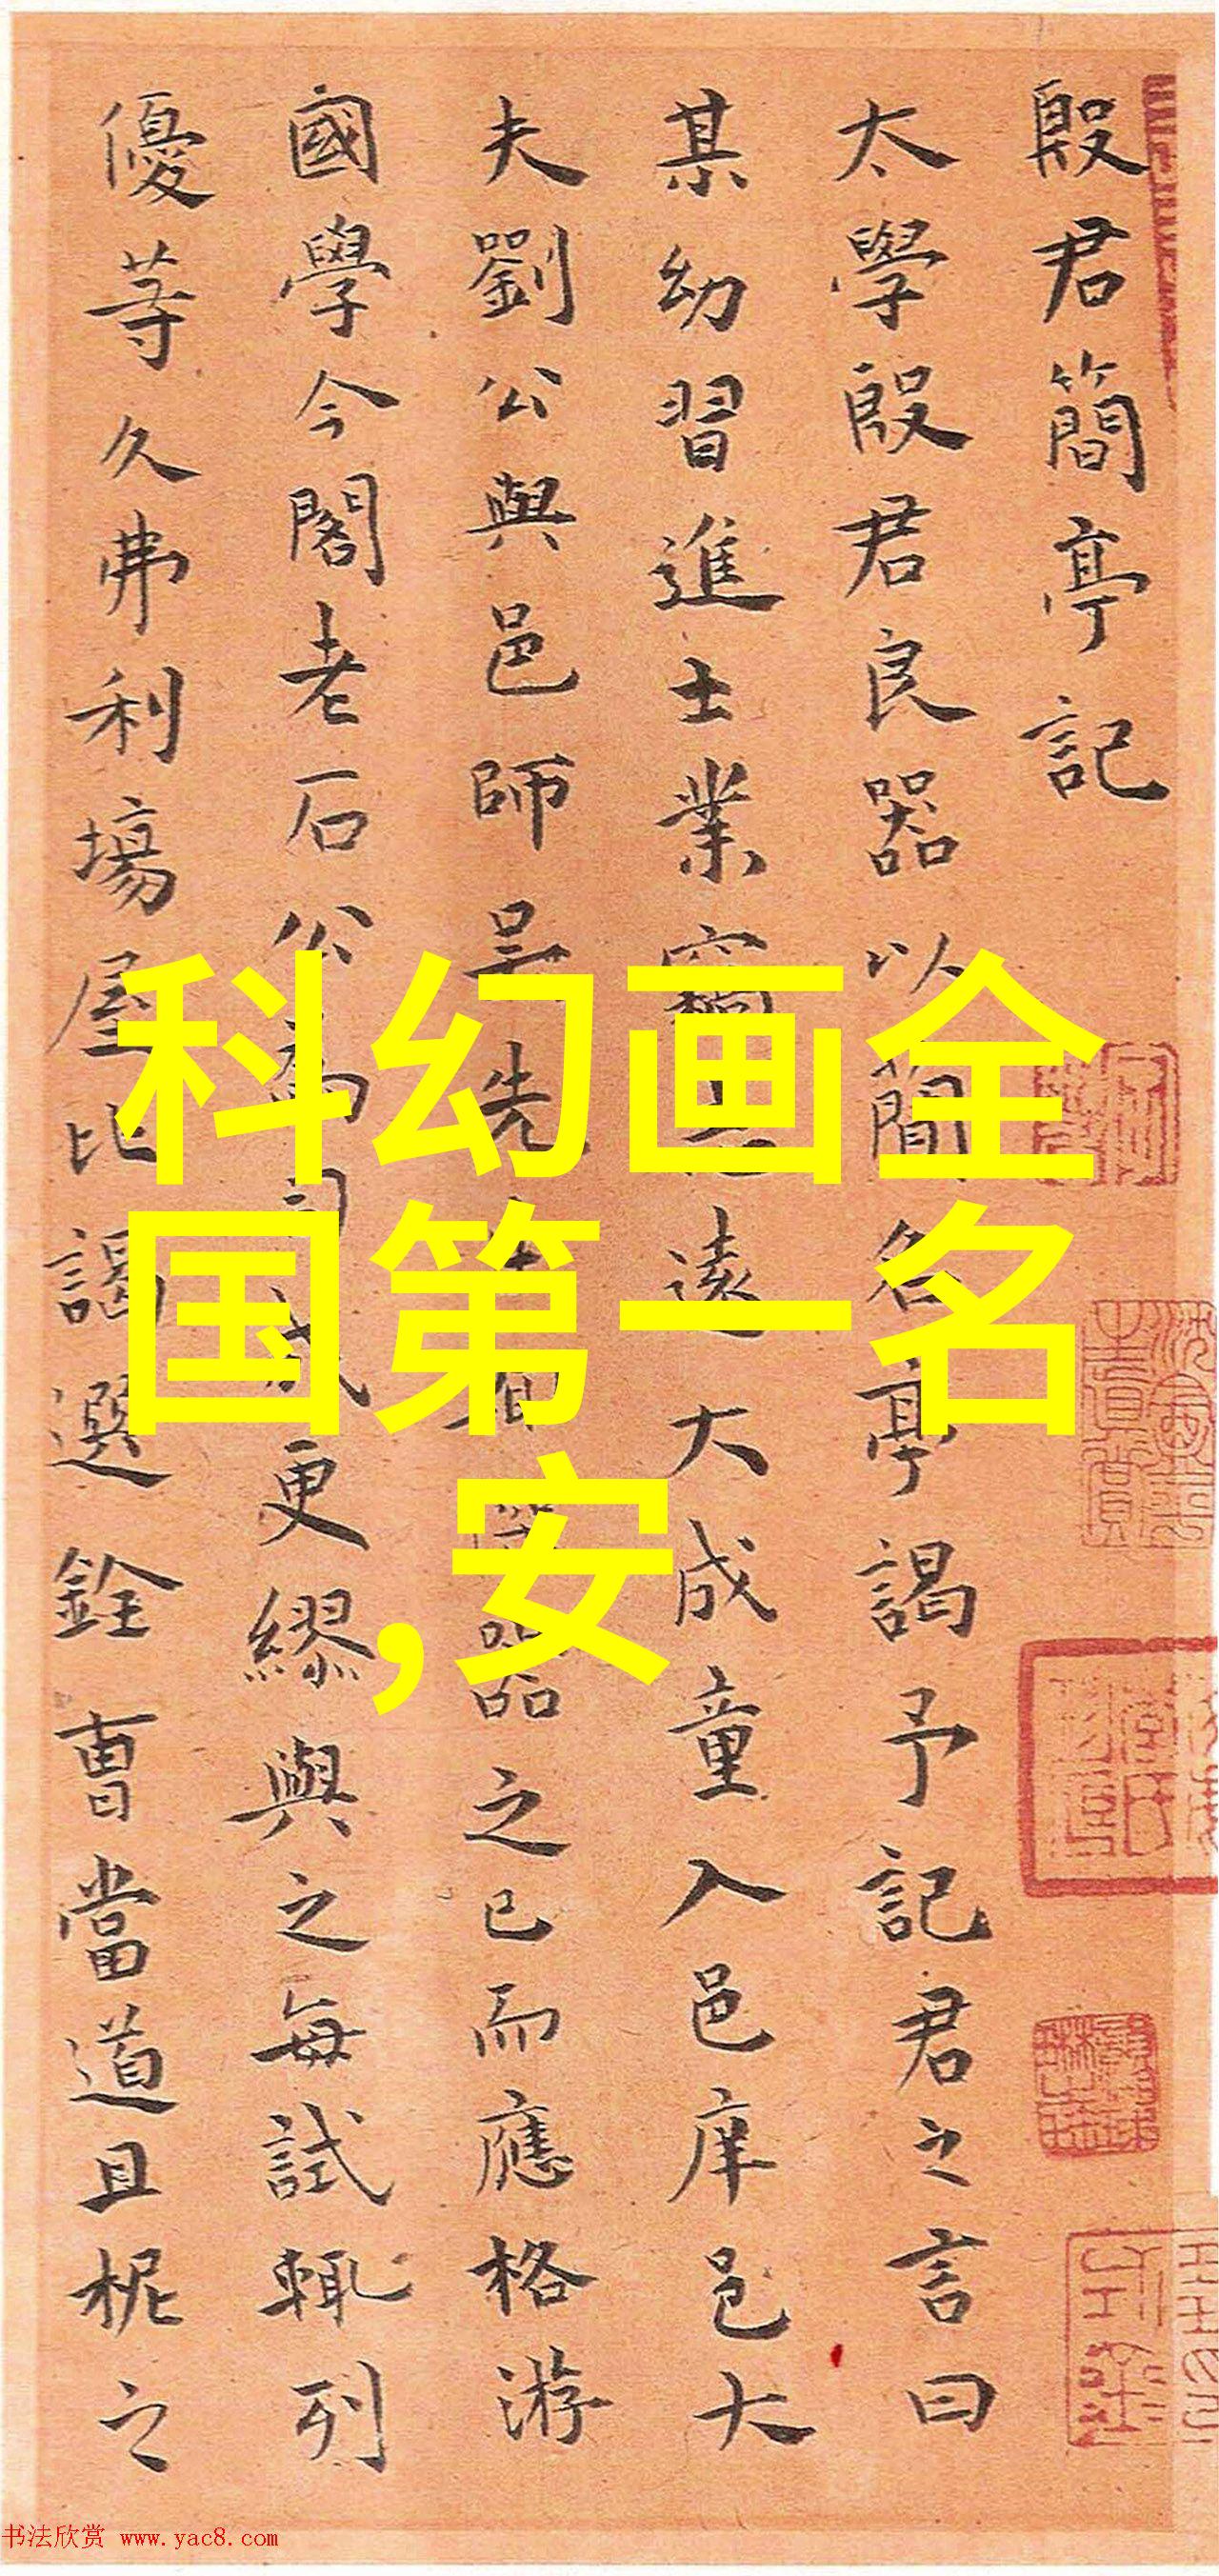 殷君簡亭記
太學殷君良器以簡名亭謁予記君之言曰
某幼習進士業竊志遠大成童入邑庠邑大
夫劉公與邑師吴先器之已而應格游
國學今閣老石公為司成更繆與之每試輒列
優等久弗利場屋比謁選銓曹當道且柅之
科幻画全
国第一名
,安
书法欣赏 www.yac8.com